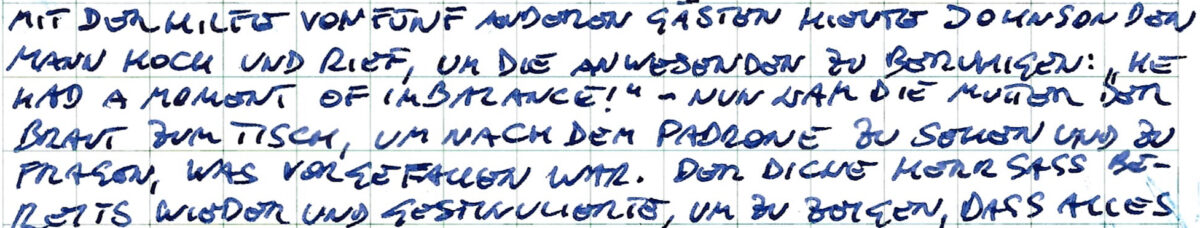 MIT DER HILFE VON FÜNF ANDEREN GÄSTEN HIEVTE JOHNSON DEN
MANN HOCH UND RIEF, UM DIE ANWESENDEN ZU BERUHIGEN: „HE
HAD A MOMENT OF IMBALANCE!“ – NUN KAM DIE MUTTER DER
BRAUT ZUM TISCH, UM NACH DEM PADRONE ZU SEHEN UND ZU
FRAGEN, WAS VORGEFALLEN WAR. DER DICKE HERR SASS BE-
REITS WIEDER UND GESTIKULIERTE, UM ZU ZEIGEN, DASS ALLES